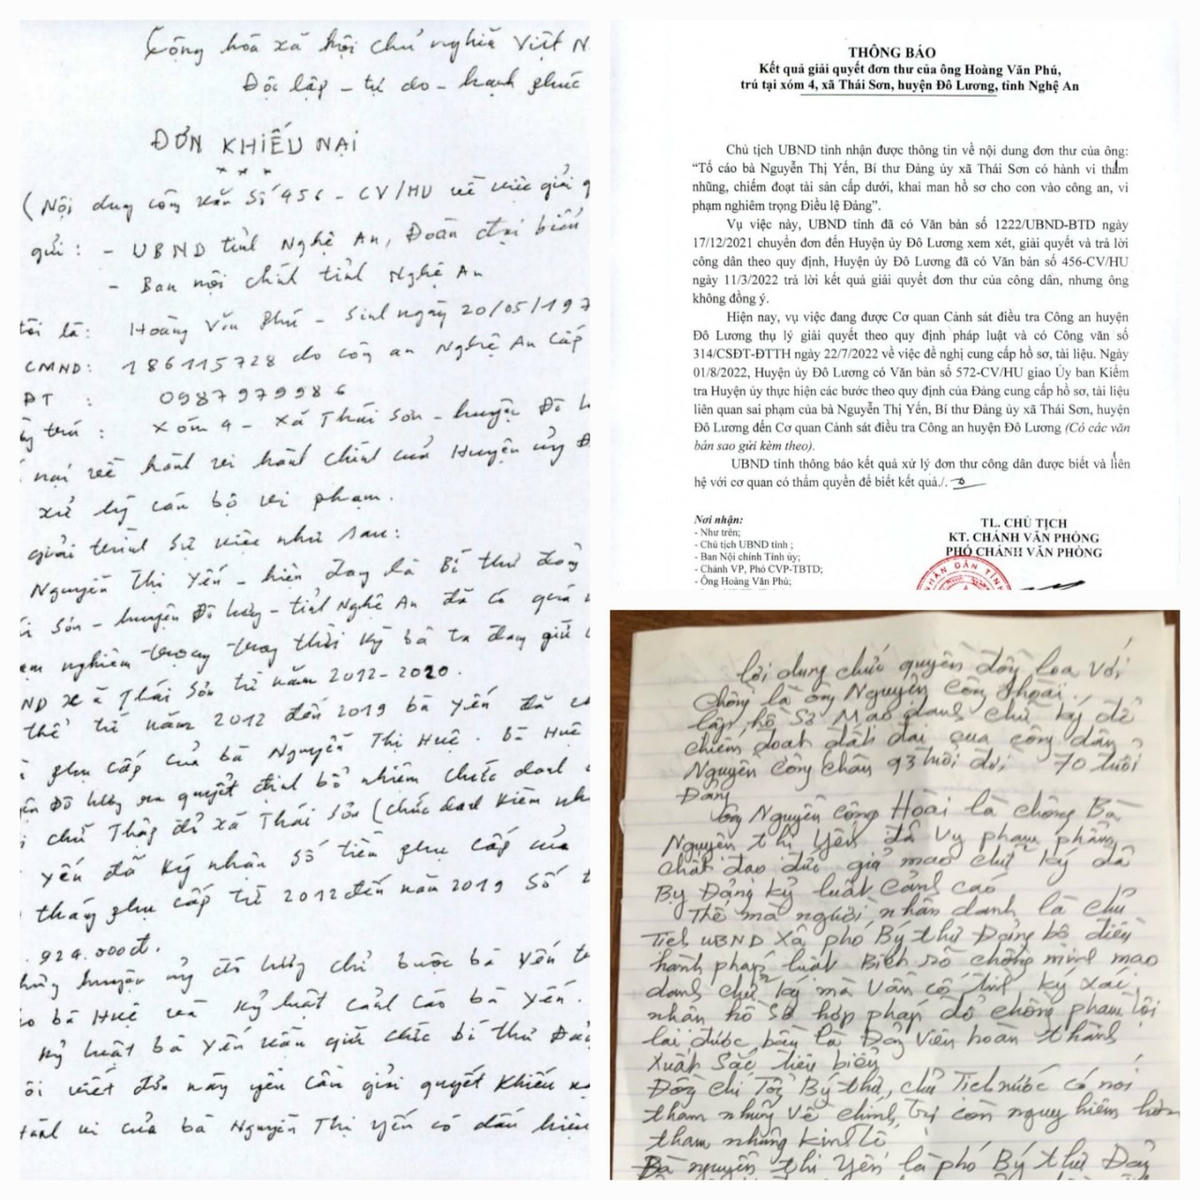 Cộng hòa xã hội chủ nghĩa Việt N
Độc lập - tự do - hạnh phúc
ĐƠN KHIẾU NẠI
(Nội dung công văn Số 456 - CV/HU về việc giải q
gửi: - UBND tỉnh Nghệ An, Đoàn đại biểu
- Ban nội chính tỉnh Nghệ An
tôi là: Hoàng Văn Phú - Sinh ngày 20/05/197
CMND: 186115728 do công an Nghệ An cấp
ĐT : 0987979986
trú : xóm 4 - xã Thái Sơn - huyện Đô L
nại về hành vi hành chính của Huyện ủy Đ
xử lý cán bộ vi phạm.
giải trình sự việc như sau:
Nguyễn Thị Yến - hiện đang là Bí thư đảng
Sơn - huyện Đô lương - tỉnh Nghệ An đã có quá
nghiêm trọng trong thời kỳ bà ta đang giữ
ND xã Thái Sơn từ năm 2012-2020.
thể từ năm 2012 đến 2019 bà Yến đã
phụ cấp của bà Nguyễn Thị Huệ. bà Huệ
Đô lương ra quyết định bổ nhiệm chức danh
chữ Thập đỏ xã Thái Sơn (chức danh kiêm nh
Yến đã ký nhận số tiền phụ cấp của
tháng phụ cấp từ 2012 đến năm 2019 số t
924.000đ.
huyện ủy đô lương chỉ buộc bà Yến t
bà Huệ và kỷ luật cảnh cáo bà Yến.
kỷ luật bà Yến vẫn giữ chức bí thư Đả
ôi viết đơn này yêu cầu giải quyết khiếu n
hành vi của bà Nguyễn Thị Yến có dấu hiệu
THÔNG BÁO
Kết quả giải quyết đơn thư của ông Hoàng Văn Phú,
trú tại xóm 4, xã Thái Sơn, huyện Đô Lương, tỉnh Nghệ An
Chủ tịch UBND tỉnh nhận được thông tin về nội dung đơn thư của ông:
"Tố cáo bà Nguyễn Thị Yến, Bí thư Đảng ủy xã Thái Sơn có hành vi tham
nhũng, chiếm đoạt tài sản cấp dưới, khai man hồ sơ cho con vào công an, vi
phạm nghiêm trọng Điều lệ Đảng".
Vụ việc này, UBND tỉnh đã có Văn bản số 1222/UBND-BTD ngày
17/12/2021 chuyển đơn đến Huyện ủy Đô Lương xem xét, giải quyết và trả lời
công dân theo quy định, Huyện ủy Đô Lương đã có Văn bản số 456-CV/HU
ngày 11/3/2022 trả lời kết quả giải quyết đơn thư của công dân, nhưng ông
không đồng ý.
Hiện nay, vụ việc đang được Cơ quan Cảnh sát điều tra Công an huyện
Đô Lương thụ lý giải quyết theo quy định pháp luật và có Công văn số
314/CSĐT-ĐTTH ngày 22/7/2022 về việc đề nghị cung cấp hồ sơ, tài liệu. Ngày
01/8/2022, Huyện ủy Đô Lương có Văn bản số 572-CV/HU giao Ủy ban Kiểm
tra Huyện ủy thực hiện các bước theo quy định của Đảng cung cấp hồ sơ, tài liệu
liên quan sai phạm của bà Nguyễn Thị Yến, Bí thư Đảng ủy xã Thái Sơn, huyện
Đô Lương đến Cơ quan Cảnh sát điều tra Công an huyện Đô Lương (Có các văn
bản sao gửi kèm theo).
UBND tỉnh thông báo kết quả xử lý đơn thư công dân được biết và liên
hệ với cơ quan có thẩm quyền để biết kết quả./.
Nơi nhận:
- Như trên;
- Chủ tịch UBND tỉnh ;
- Ban Nội chính Tỉnh ủy;
- Chánh VP, Phó CVP-TBTD;
- Ông Hoàng Văn Phú;
TL. CHỦ TỊCH
KT. CHÁNH VĂN PHÒNG
PHÓ CHÁNH VĂN PHÒNG
HÂN DÂN TỈNH
lời dung chức quyền đồng loa với
chồng là ông Nguyễn công Hoài.
lập hồ sơ Mạo danh chữ ký để
chiếm đoạt đất đai của công dân
Nguyễn công Châu 93 tuổi đời 70 tuổi
Đảng
Ông Nguyễn công Hoài là chồng Bà
Nguyễn thị Yến đã vy phạm phẩm
chất đạo đức giả mạo chữ ký đã
By Đảng kỷ luật cảnh cáo
Thế mà người nhân danh là chủ
Tịch UBND Xã phó Bý thư Đảng bộ điều
hành pháp luật Biết rõ chồng mình mạo
danh chữ ký mà vẫn cố tình ký xác
nhận hồ sơ hợp pháp để chồng phạm tội
lại được bầu là Đảng Viên hoàn thành
Xuất Sắc tiêu biểu
Đồng chí Tổng Bý thư, chủ Tịch nước có nói
tham nhũng về chính trị còn nguy hiểm hơn
tham nhũng kinh tế
Bà nguyễn thị Yến là phó Bý thư Đảng